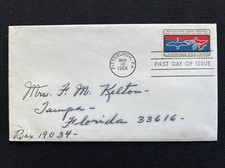 PITTSBURGH, PA.
MAR
15
1966
FIRST DAY OF ISSUE
Mrs. F. M. Kelton-
Tampa-
Florida 33616-
Box 19034-